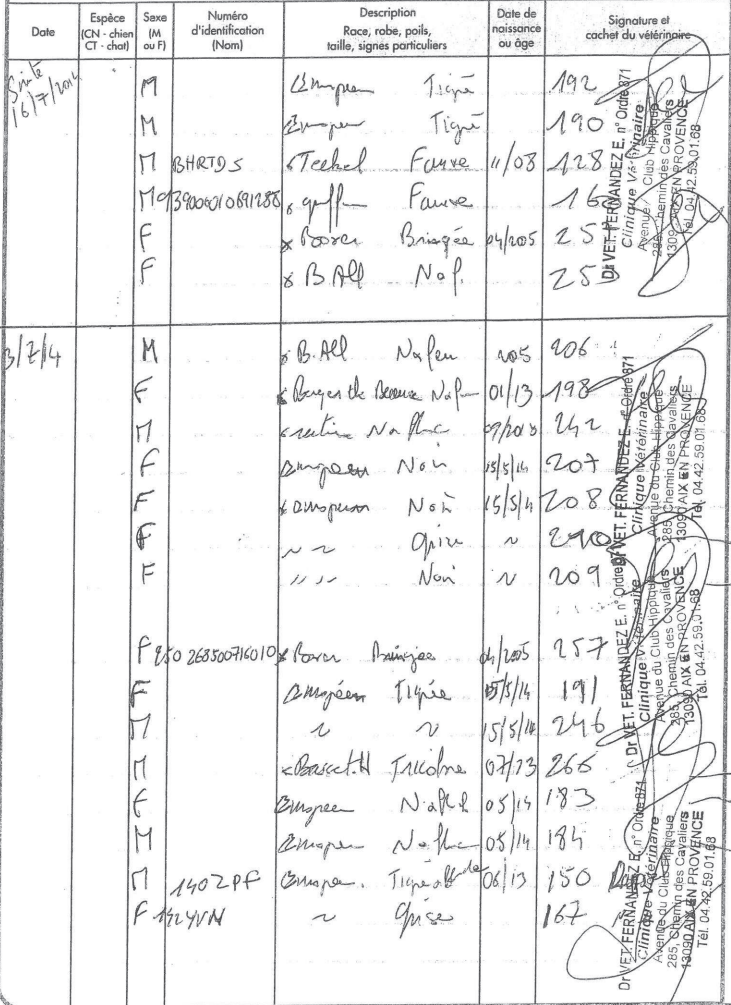 Date Espèce (CN - chien CT - chat) Sexe (M ou F) Numéro d'identification (Nom) Description Race, robe, poils, taille, signes particuliers Date de naissance ou âge Signature et cachet du vétérinaire
Suite 16/7/2014 M Européen Tigré 192
M Européen Tigré 190
M BHRTDS Teckel Fauve 11/08 128
M Fauve
F Boxer Bringée 04/2005 257
F B All
M B.All 2005 206
F Berger de Beauce 01/13 198
M 242
F Européen Noir 15/5/14 207
F Européen Noir 15/5/14 208
F " " Grise " 290
F " " Noir " 209
F 250 268500716010 Boxer Bringée 04/2005 257
F Européen Tigrée 15/5/14 191
M " " 15/5/14 246
M Basset.H Tricolore 07/13 266
F Européen 05/14 183
M Européen 05/14 184
M 140ZPF Européen 06/13 150
F 142YVN " Grise 167
Dr VET. FERNANDEZ E. n° Ordre 871
Clinique Vétérinaire
Avenue du Club Hippique
285, Chemin des Cavaliers
13090 AIX EN PROVENCE
Tél. 04.42.59.01.68
Dr VET. FERNANDEZ E. n° Ordre 871
Clinique Vétérinaire
Avenue du Club Hippique
285, Chemin des Cavaliers
13090 AIX EN PROVENCE
Tél. 04.42.59.01.68
Dr VET. FERNANDEZ E. n° Ordre 871
Clinique Vétérinaire
Avenue du Club Hippique
285, Chemin des Cavaliers
13090 AIX EN PROVENCE
Tél. 04.42.59.01.68
Dr VET. FERNANDEZ E. n° Ordre 871
Clinique Vétérinaire
Avenue du Club Hippique
285, Chemin des Cavaliers
13090 AIX EN PROVENCE
Tél. 04.42.59.01.68